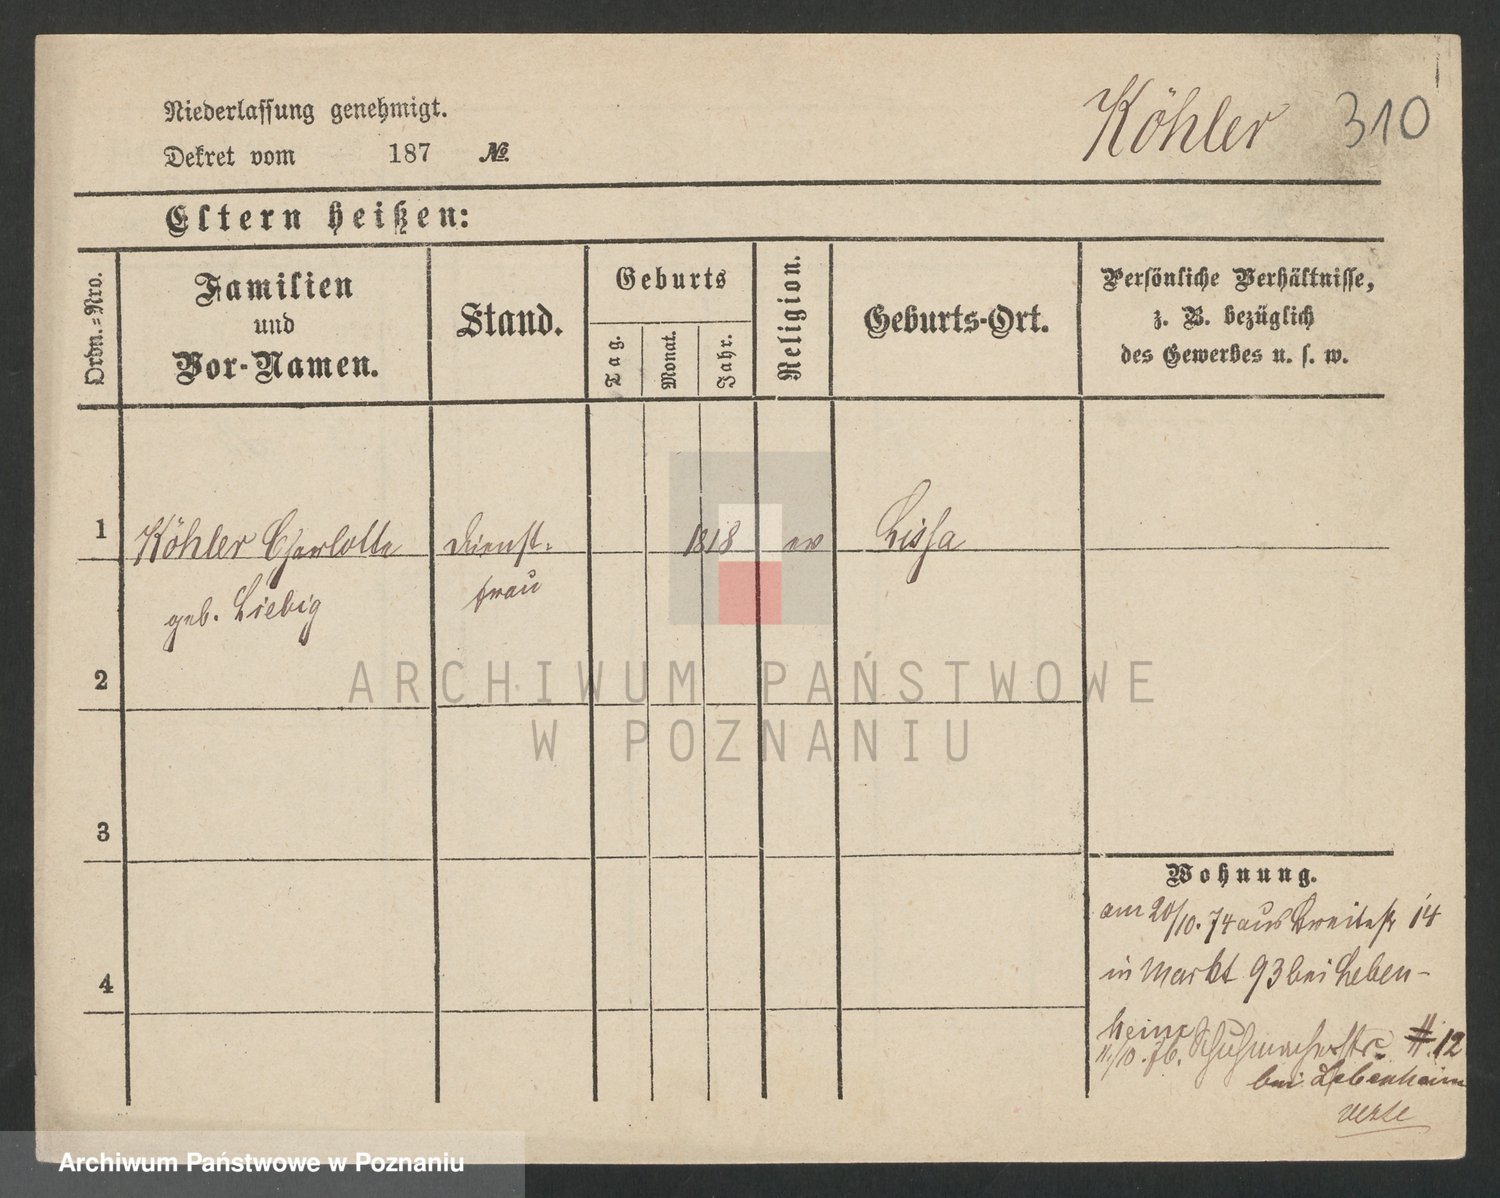 Köhler 310
Niederlassung genehmigt.
Dekret vom 187 №
Eltern heißen:
Ordn.-Nro.
Familien
und
Vor-Namen.
Stand.
Geburts
Tag.
Monat.
Jahr.
Religion.
Geburts-Ort.
Persönliche Verhältnisse,
z. B. bezüglich
des Gewerbes u. s. w.
1 Köhler Charlotte Dienst- 1818 ev Lissa
geb. Liebig frau
2
ARCHIWUM PAŃSTWOWE
W POZNANIU
3
4
Wohnung.
am 20/10. 74 aus Breitestr 14
in Markt 93 bei Leben-
heim
11/10. 76. Schuhmacherstr. 12
bei Lebenheim
Archiwum Państwowe w Poznaniu